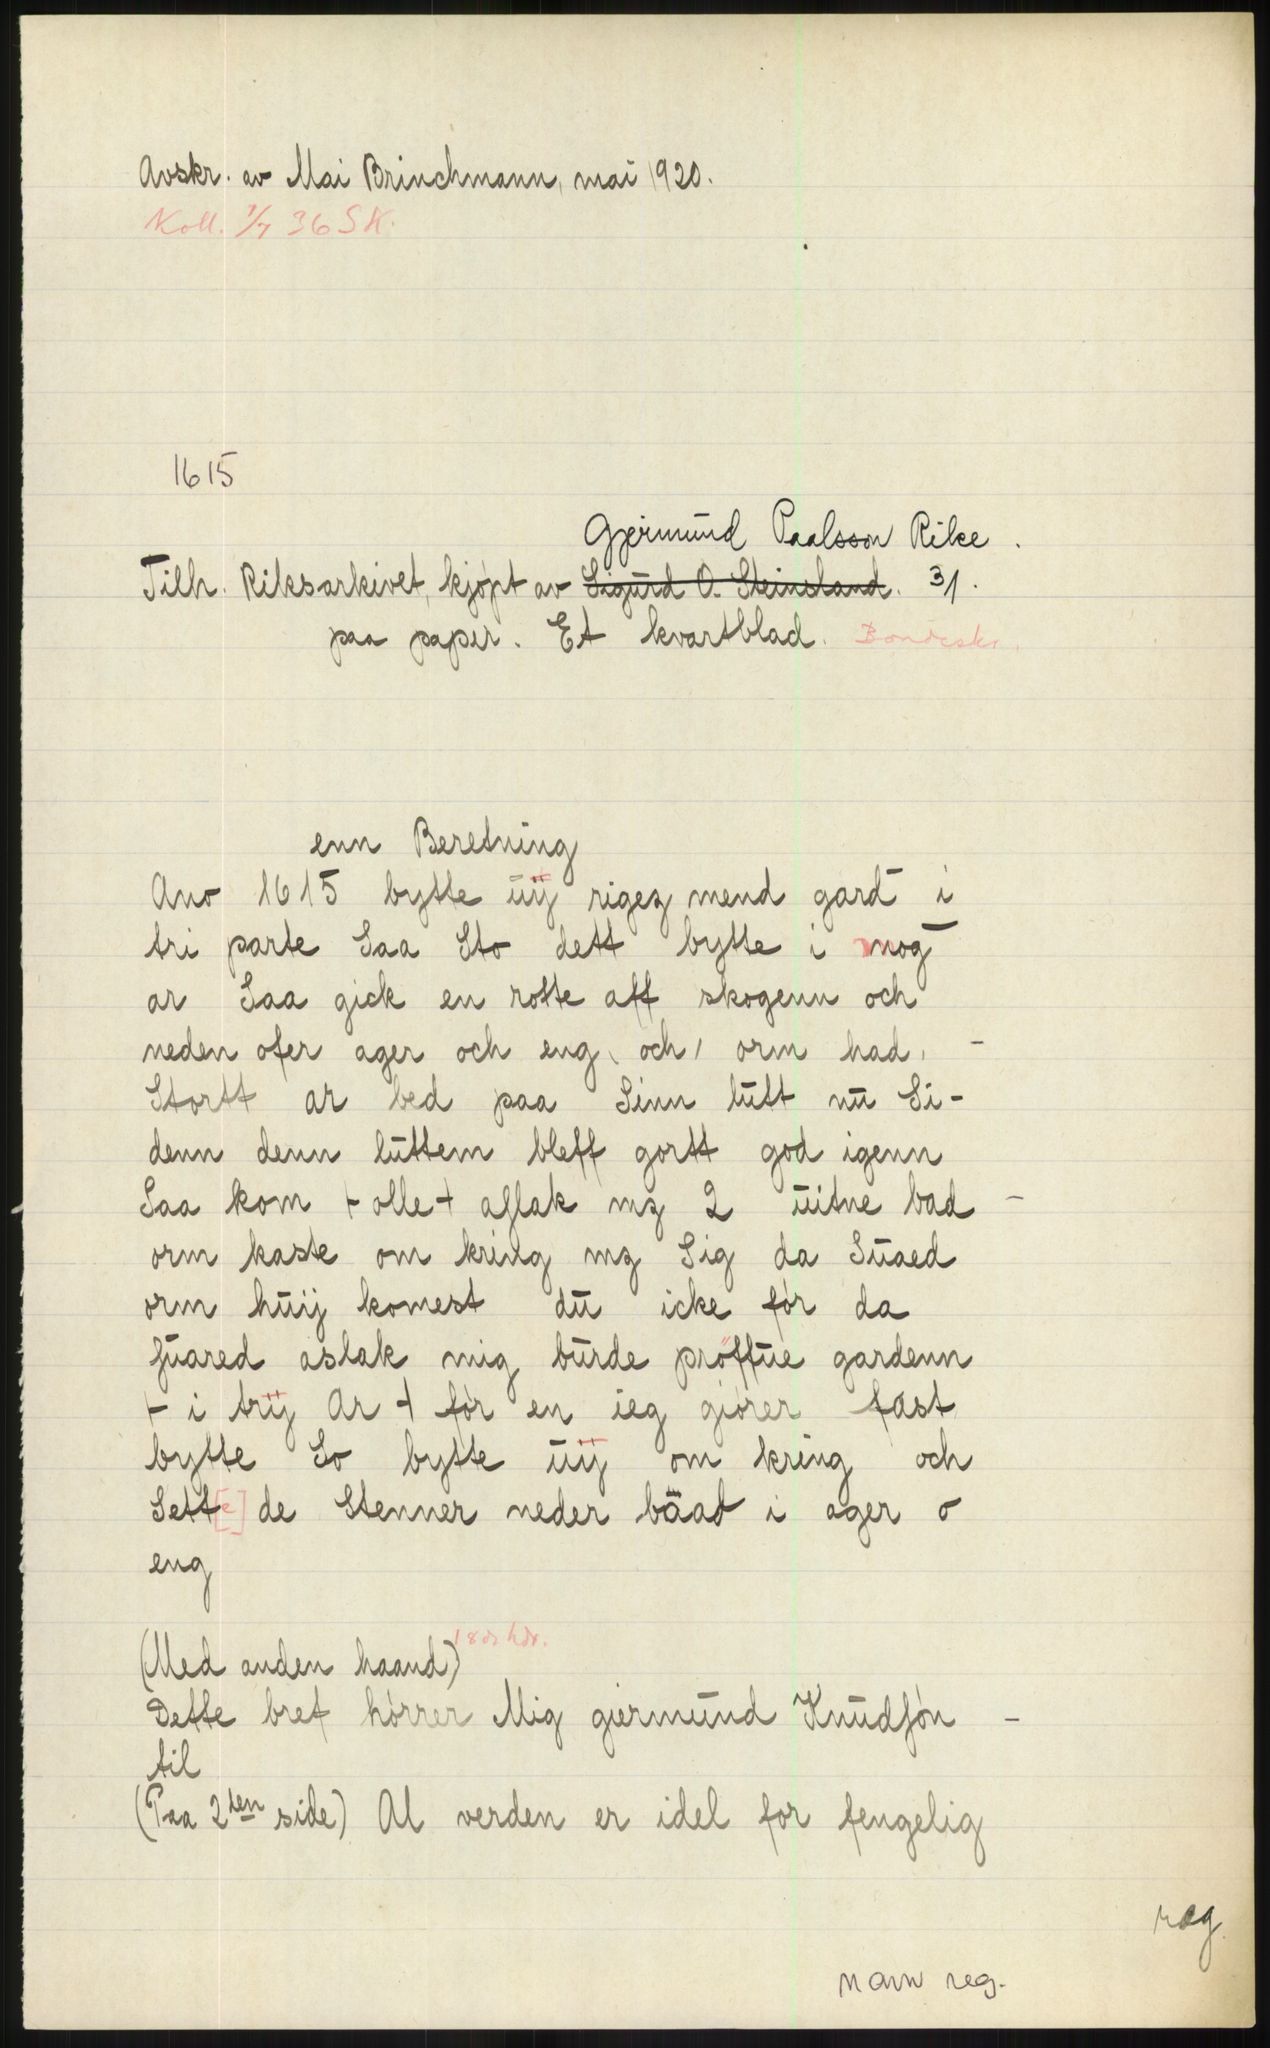 Avskr. av Mai Brinchmann, mai 1920.
Koll. 7/7 36 SK.
1615
Gjermund Paalsson Rike.
Tilh. Riksarkivet, kjøpt av Sigurd O. Steinsland. 31.
paa papir. Et kvartblad. Bondeskr.
enn Beretning
Ano 1615 bytte ūÿ rigez mend gard i
tri parte Saa Sto dett bytte i nog
ar Saa gick en rotte aff skogenn och
neden ofer ager och eng, och, orm had, -
Stortt ar bed paa Sinn lutt nū Si-
denn denn lūttem bleff gortt god igenn
Saa kom + olle + aslak mz 2 ūitne bad -
orm kaste om kring mz Sig da Sūaed
orm hūij komest dū icke før da
ſuared aslak mig būrde prøffūe gardenn
+ i trÿ Ar + før en ieg giører fast
bytte So bytte ūÿ om kring och
Sett[e] de Stenner neder bäad i ager o
eng
(Med anden haand) 18de hdr.
Dette bref hørrer Mig giermūnd Knūdſøn -
til
(Paa 2den side) Al verden er idel for fengelig
reg
navn reg.